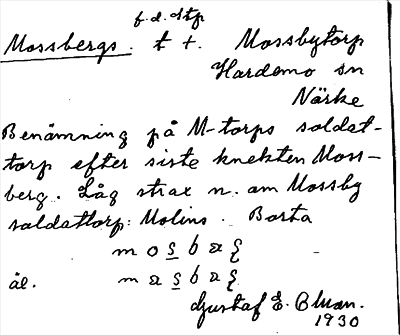 f.d. stp
Mossbergs. t t. Mossbytorp
Hardemo sn
Närke
Benämning på M-torps soldat-
torp efter siste knekten Moss-
berg. Låg strax n. om Mossby
soldattorp: Molins. Borta
m o s b a ʀ
äl. m a s b a ʀ
Gustaf E. Bluan.
1930